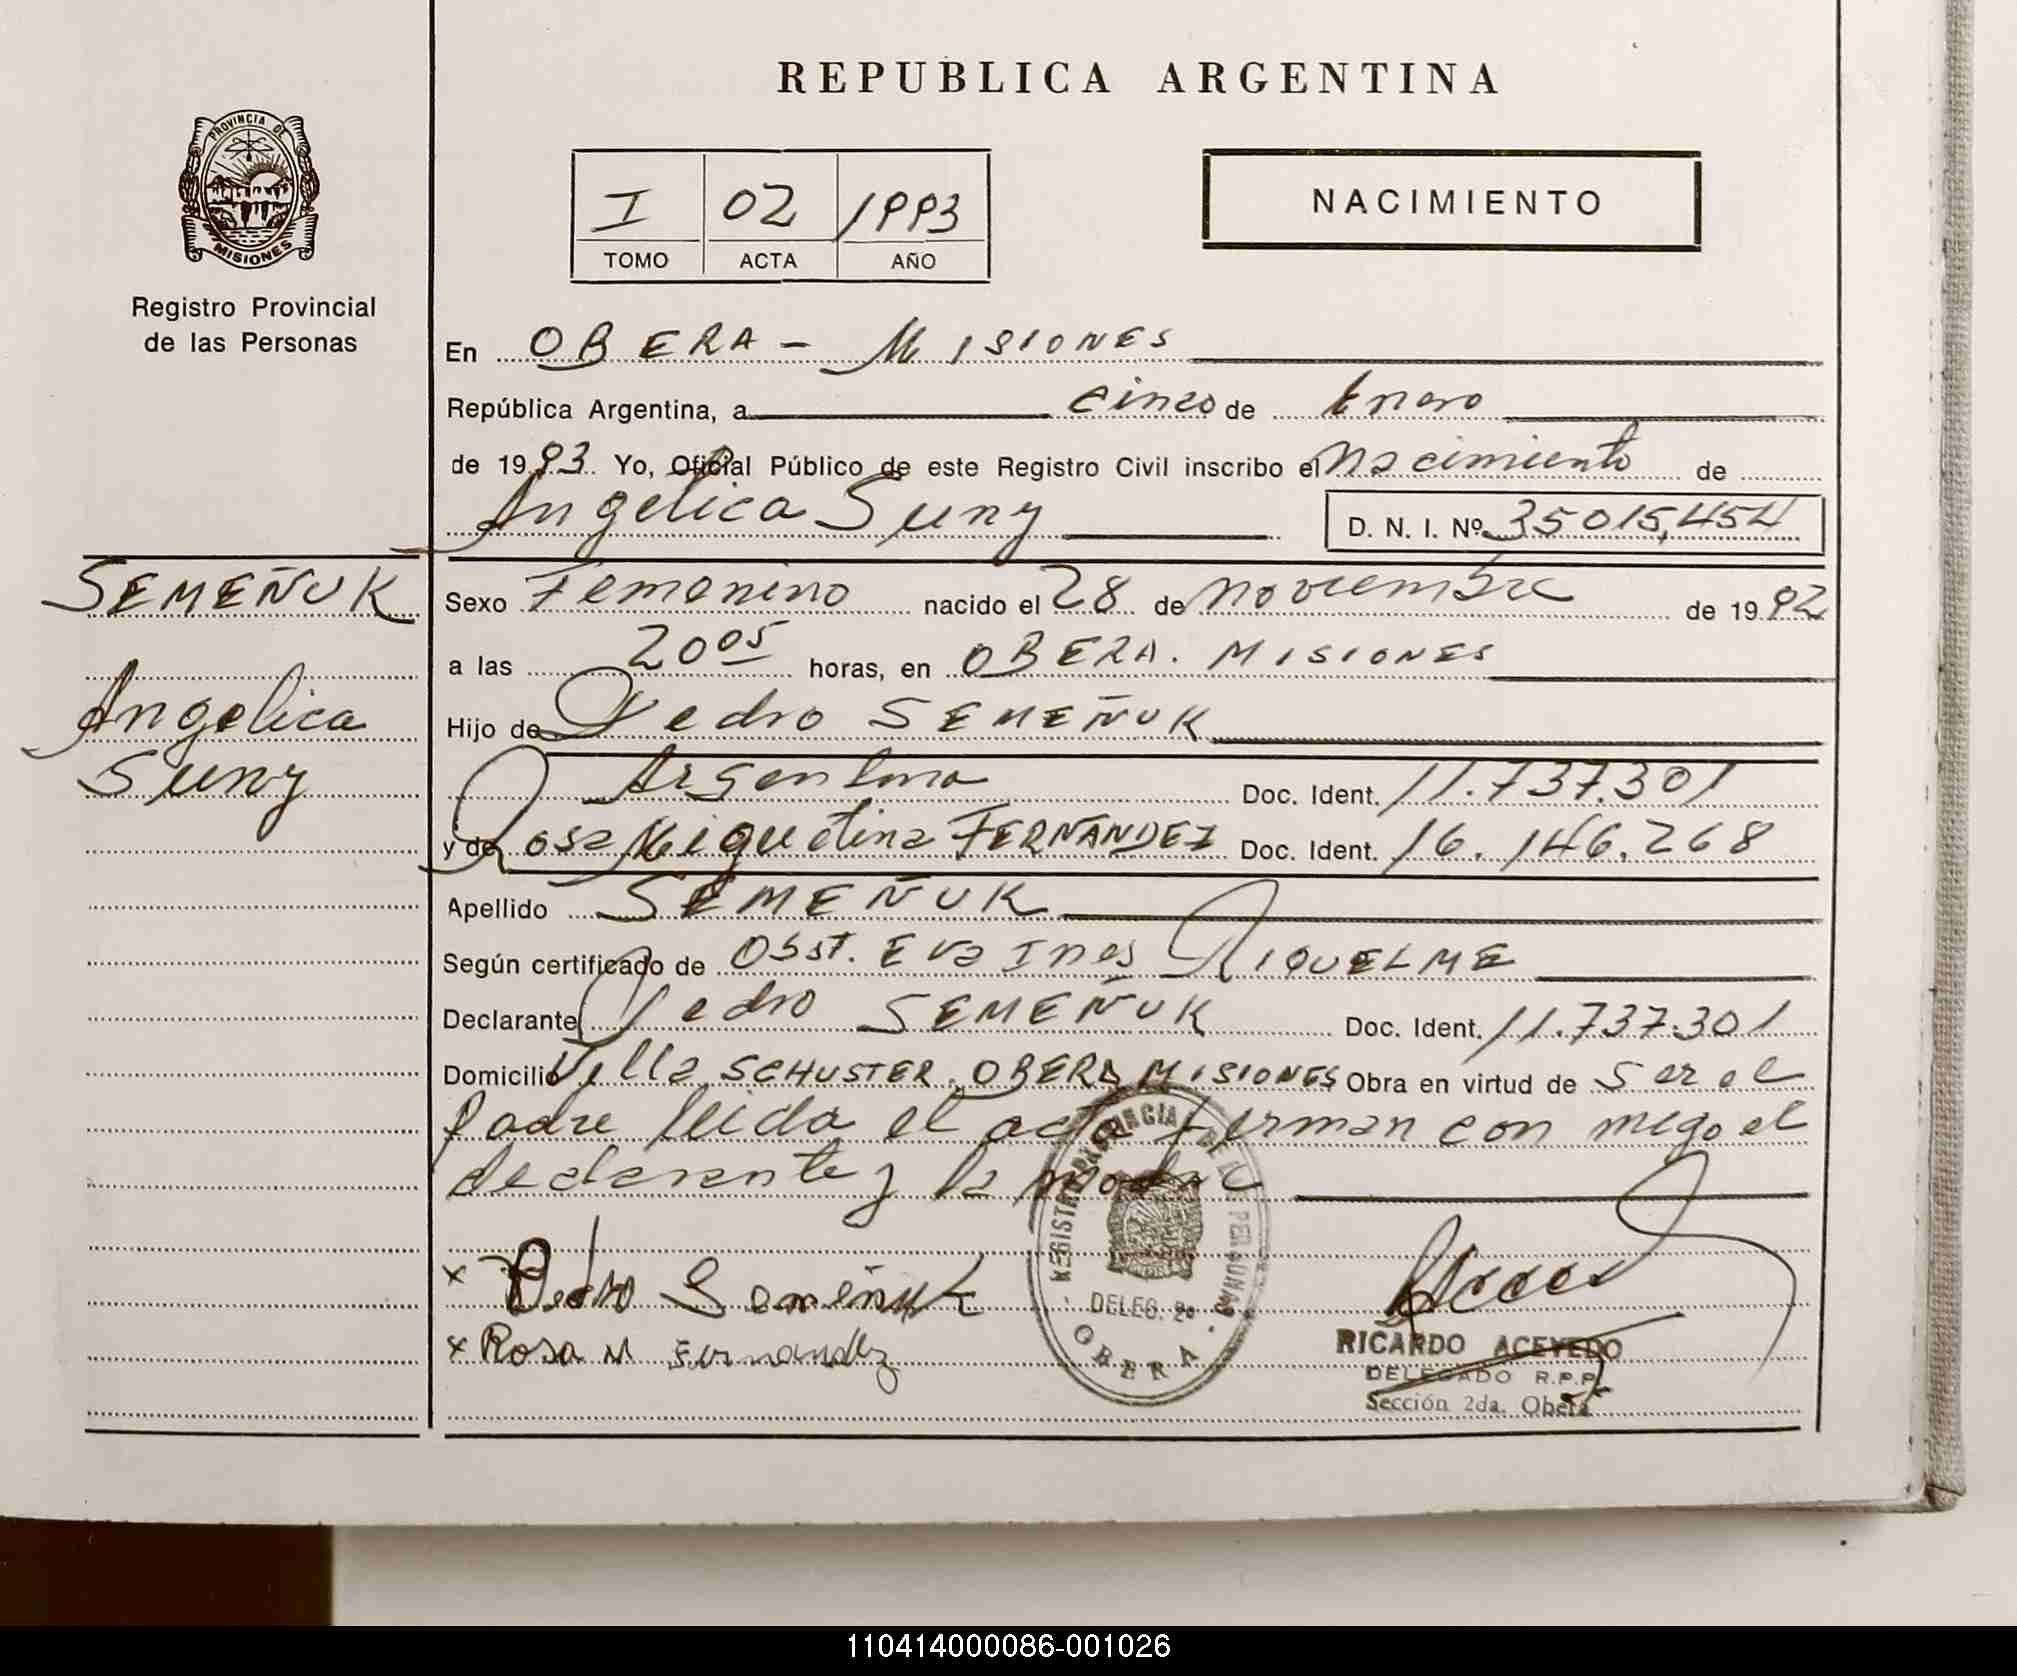 REPUBLICA ARGENTINA
PROVINCIA DE
MISIONES
Registro Provincial
de las Personas
I 02 1993
TOMO ACTA AÑO
NACIMIENTO
En OBERA - MISIONES
República Argentina, a cinco de Enero
de 1993 Yo, Oficial Público de este Registro Civil inscribo el Nacimiento de
Angelica Suny D. N. I. Nº 35015,454
SEMEÑUK
Angelica
Suny
Sexo Femenino nacido el 28 de Noviembre de 1992
a las 20 05 horas, en OBERA. MISIONES
Hijo de Pedro SEMEÑUK
Argentino Doc. Ident. 11.737.301
y de Rosa Miguelina FERNANDEZ Doc. Ident. 16.146.268
Apellido SEMEÑUK
Según certificado de Obst. Eva Ines RIQUELME
Declarante Pedro SEMEÑUK Doc. Ident. 11.737.301
Domicilio Villa SCHUSTER. OBERA MISIONES Obra en virtud de ser el
Padre leida el acta firman con migo el
declarante y la madre
x Pedro Semeñuk
x Rosa M Fernandez
REGISTRO PROVINCIAL DE LAS PERSONAS
DELEG. 2ª
OBERA
RICARDO ACEVEDO
DELEGADO R.P.P.
Sección 2da. Oberá
110414000086-001026